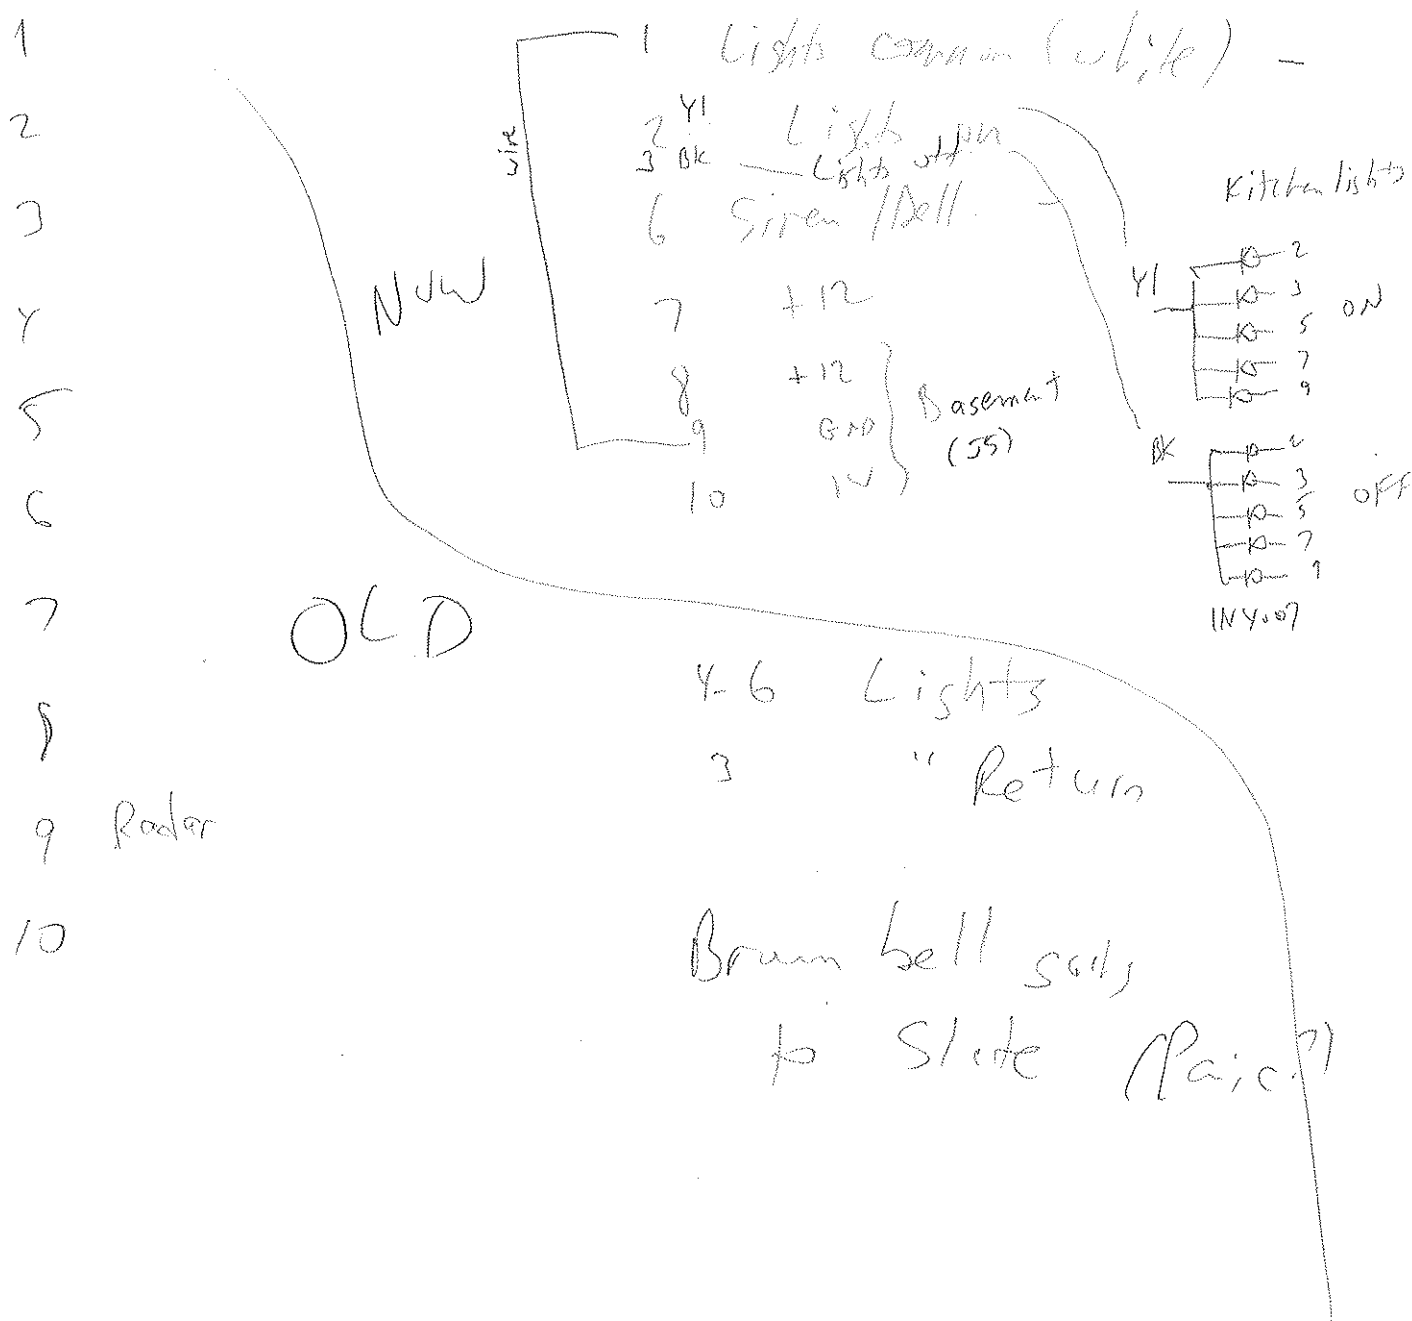 1
2
3
4
5
6
7
8
9 Radar
10
NEW
wire
1 Lights common (white) -
2 Y1 Lights on
3 BK Lights off
6 Siren / Bell
7 +12
8 +12
9 GND
10 IN
Basement
(55)
Kitchen lights
Y1
2
3
5
7
9
ON
BK
2
3
5
7
9
OFF
1N4007
OLD
4-6 Lights
3 " Return
bell
to Slate (Pair?)